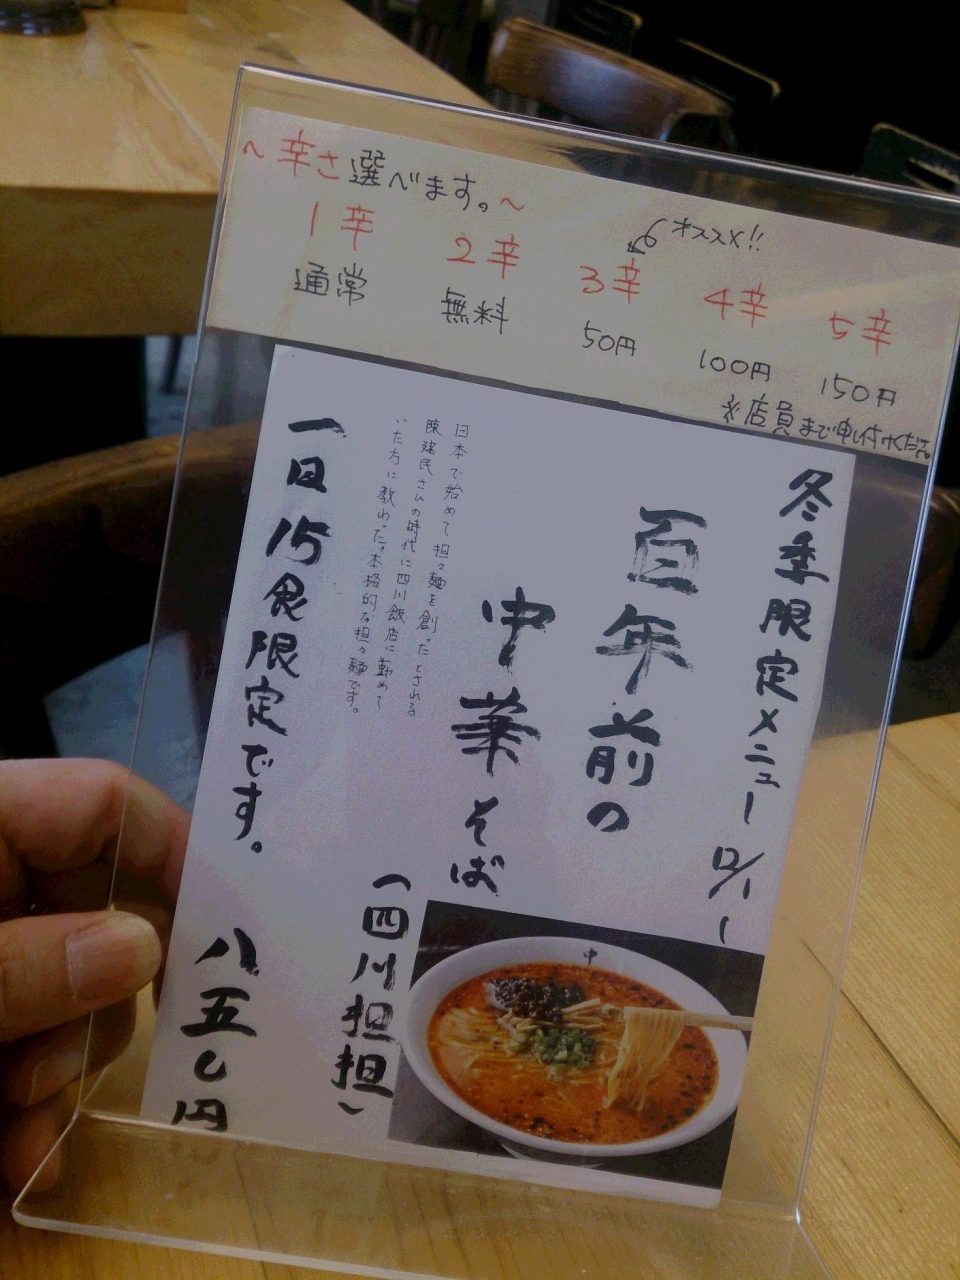 ～辛さ選べます。～
オススメ!!
1辛 2辛 3辛 4辛 5辛
通常 無料 50円 100円 150円
※店員まで申し付けください。
冬季限定メニュー 12/1〜
百年前の
中華そば
(四川担担)
日本で始めて担々麺を創ったとされる
陳建民さんの時代に四川飯店に勤めて
いた方に教わった。本格的な担々麺です。
一日15食限定です。
八五〇円
中